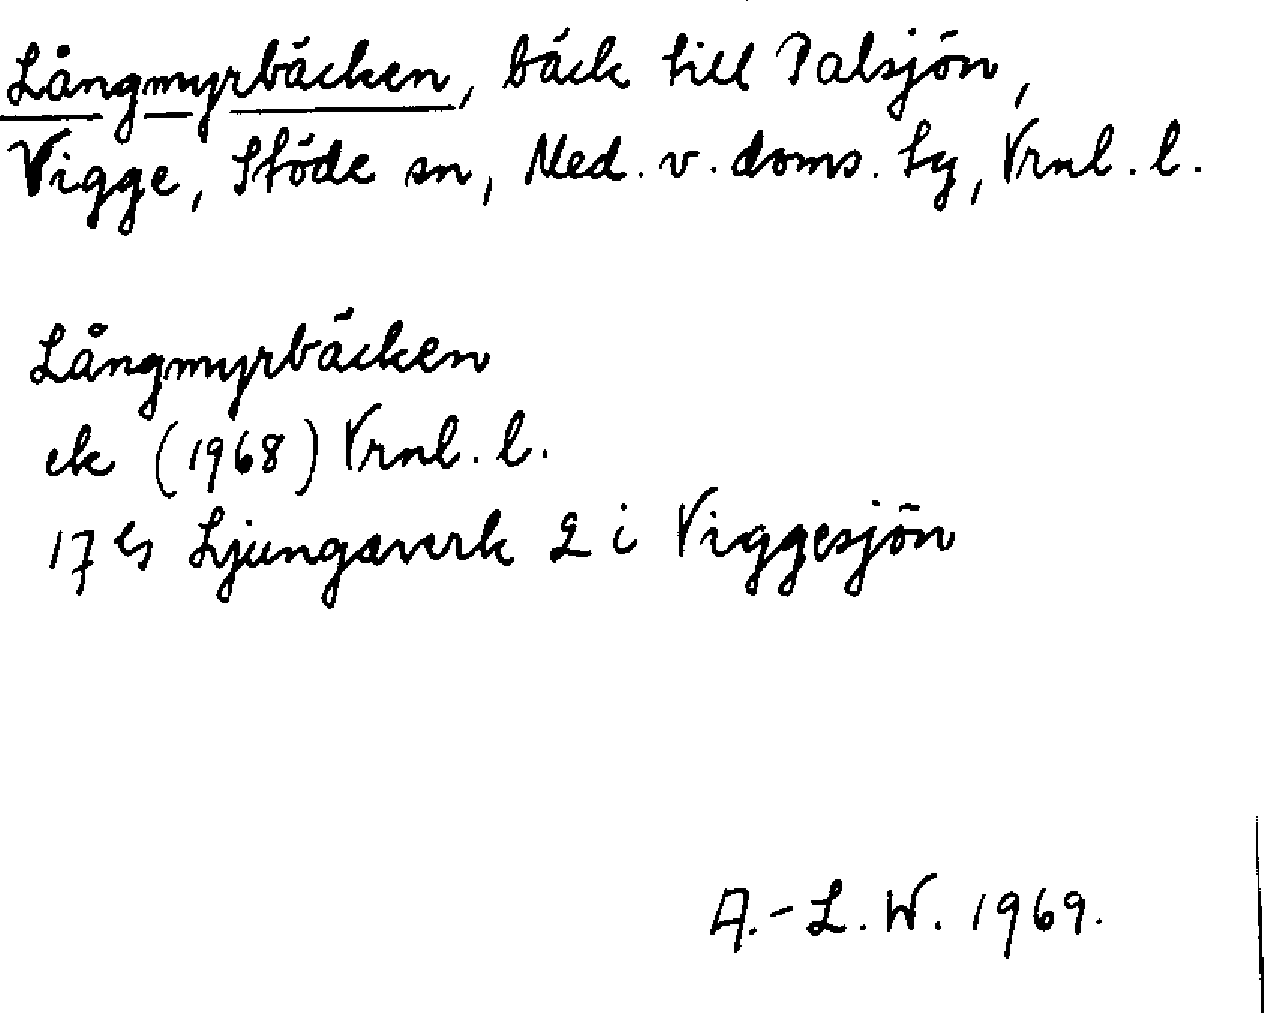 Långmyrbäcken, bäck till Palsjön,
Vigge, Stöde sn, Med. v. doms. tg, Vrnl. l.
Långmyrbäcken
ek (1968) Vrnl. l.
17 G Ljungaverk 2 i Viggesjön
A.-L. W. 1969.